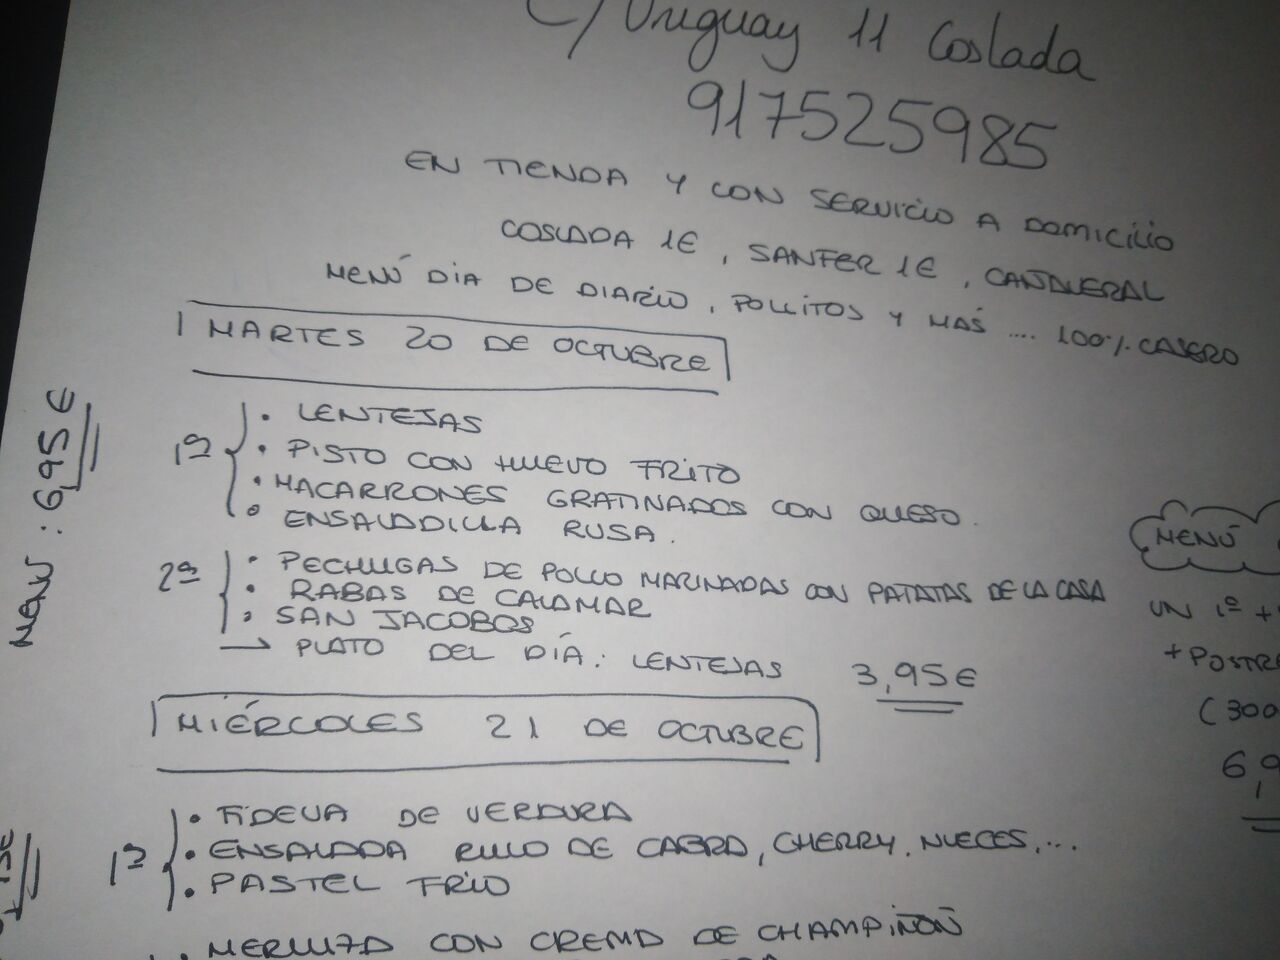 C/ Uruguay 11 Coslada
917525985
EN TIENDA Y CON SERVICIO A DOMICILIO
COSLADA 1€, SANFER 1€, CAÑAVERAL
MENÚ DIA DE DIARIO, POLLITOS Y MAS .... 100% CASERO
MARTES 20 DE OCTUBRE
MENÚ: 6,95€
1º
· LENTEJAS
· PISTO CON HUEVO FRITO
· MACARRONES GRATINADOS CON QUESO.
· ENSALADILLA RUSA.
2º
· PECHUGAS DE POLLO MARINADAS CON PATATAS DE LA CASA
· RABAS DE CALAMAR
· SAN JACOBOS
→ PLATO DEL DÍA: LENTEJAS 3,95€
MENÚ
UN 1º +
+ POSTRE
(300
6,9
MIÉRCOLES 21 DE OCTUBRE
1º
· FIDEUA DE VERDURA
· ENSALADA RULO DE CABRA, CHERRY, NUECES,...
· PASTEL FRIO
· MERLUZA CON CREMA DE CHAMPIÑON